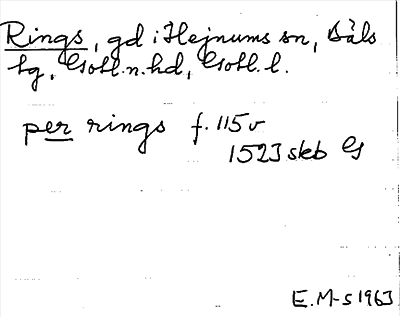 Rings, gd i Hejnums sn, Bäls
tg, Gotl.n.hd, Gotl.l.
per rings f. 115v
1523 skb Gs
E.M-s 1963